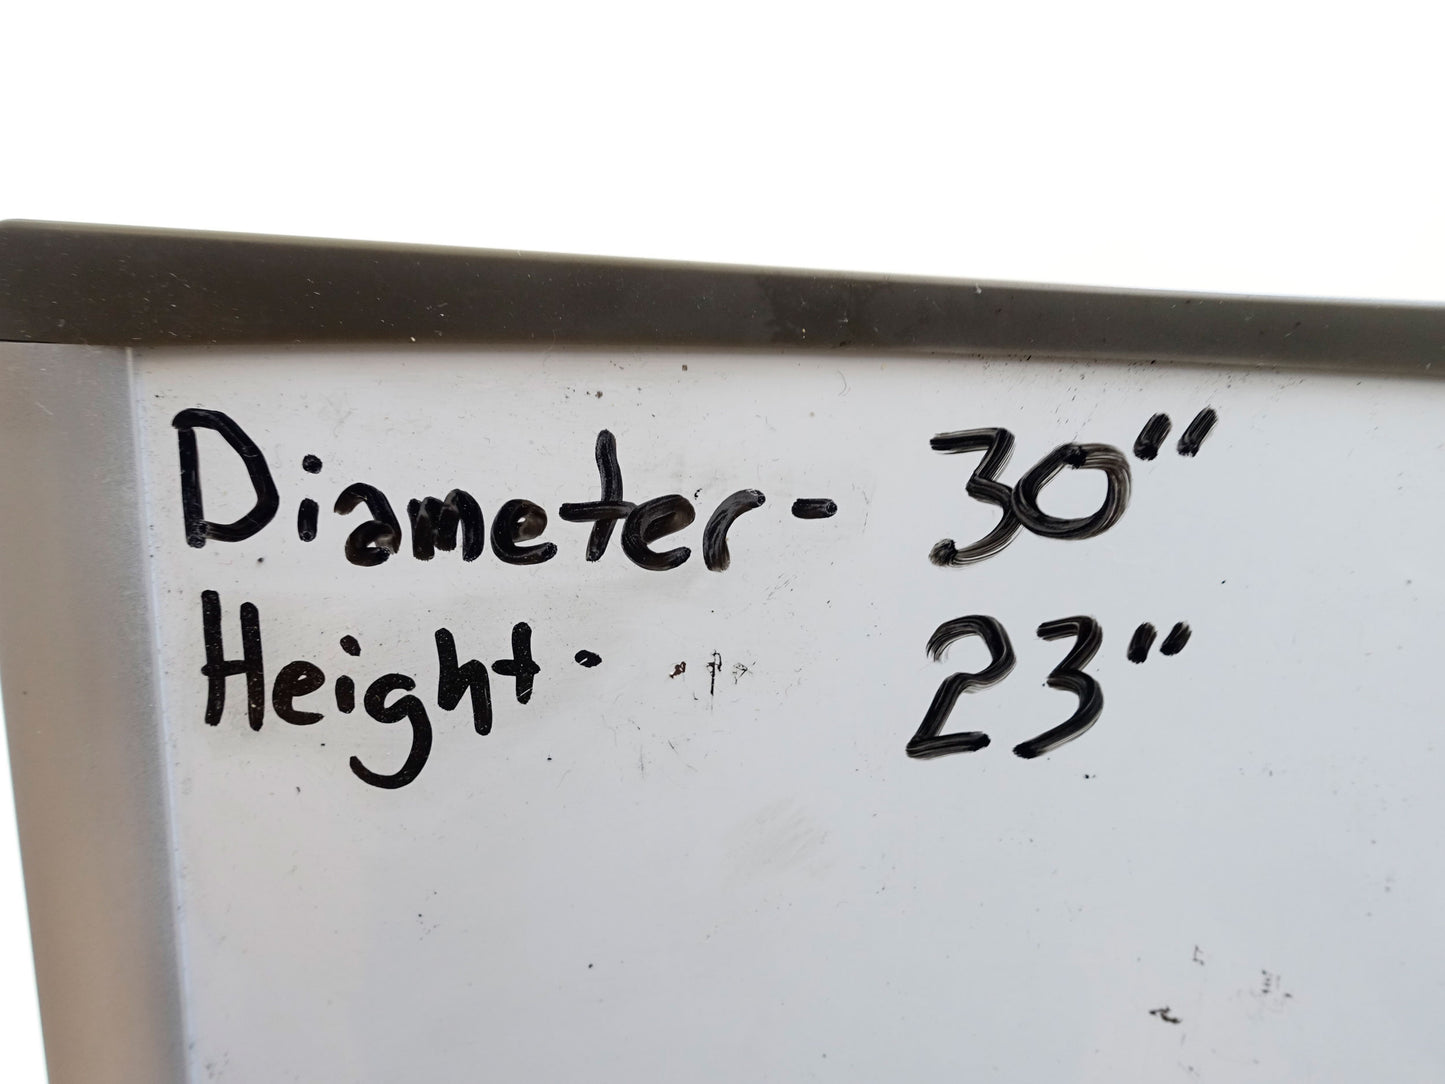 Diameter - 30"
Height - 23"